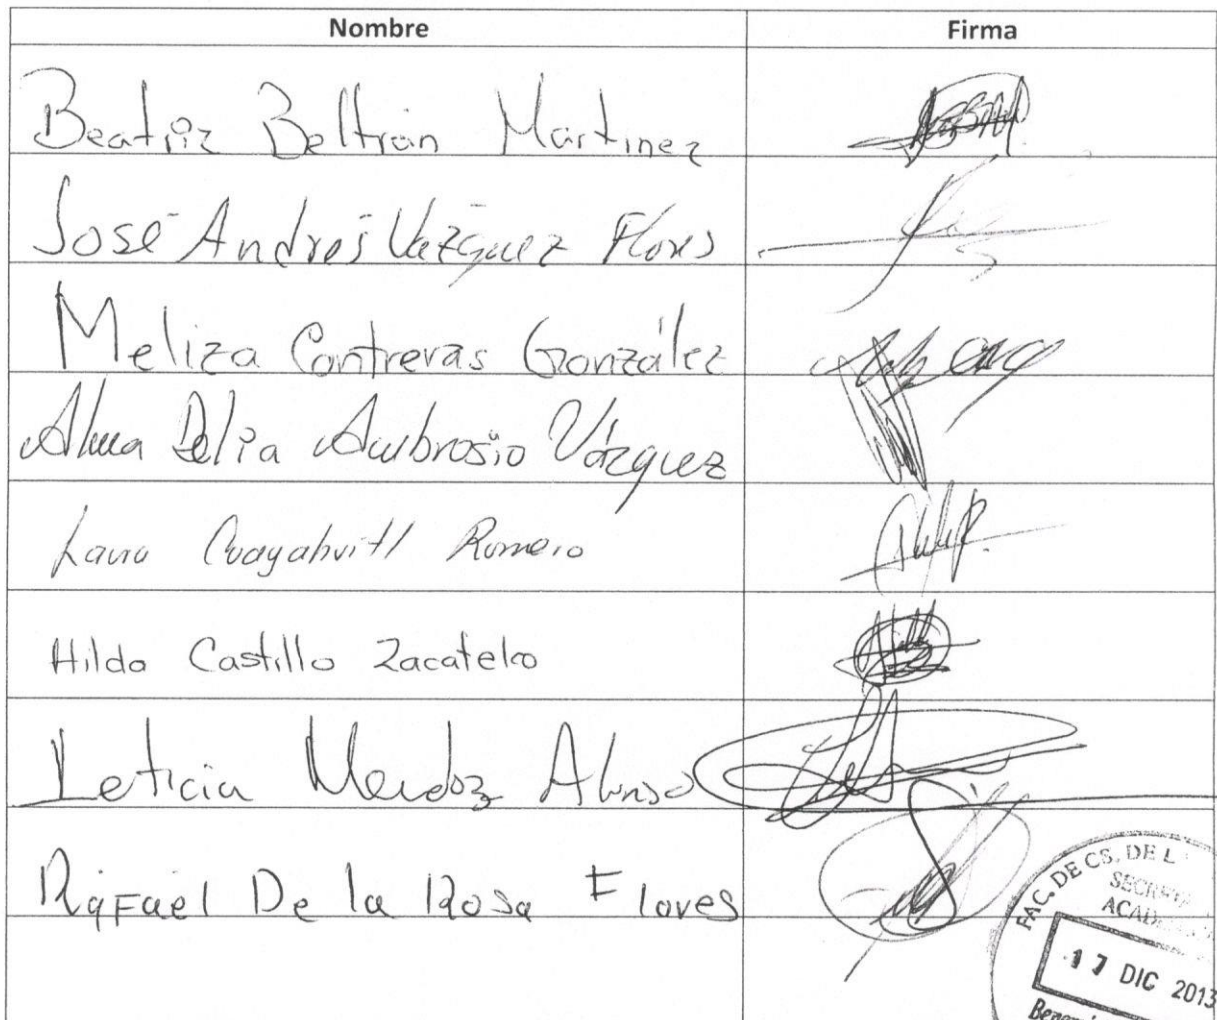 Nombre Firma
Beatriz Beltrán Martínez
José Andrés Vázquez Flores
Meliza Contreras González
Alma Delia Ambrosio Vázquez
Laura Cuayahuitl Romero
Hilda Castillo Zacatelco
Leticia Mendoz Alonso
Rafael De la Rosa Flores
FAC. DE CS. DE L
17 DIC 2013